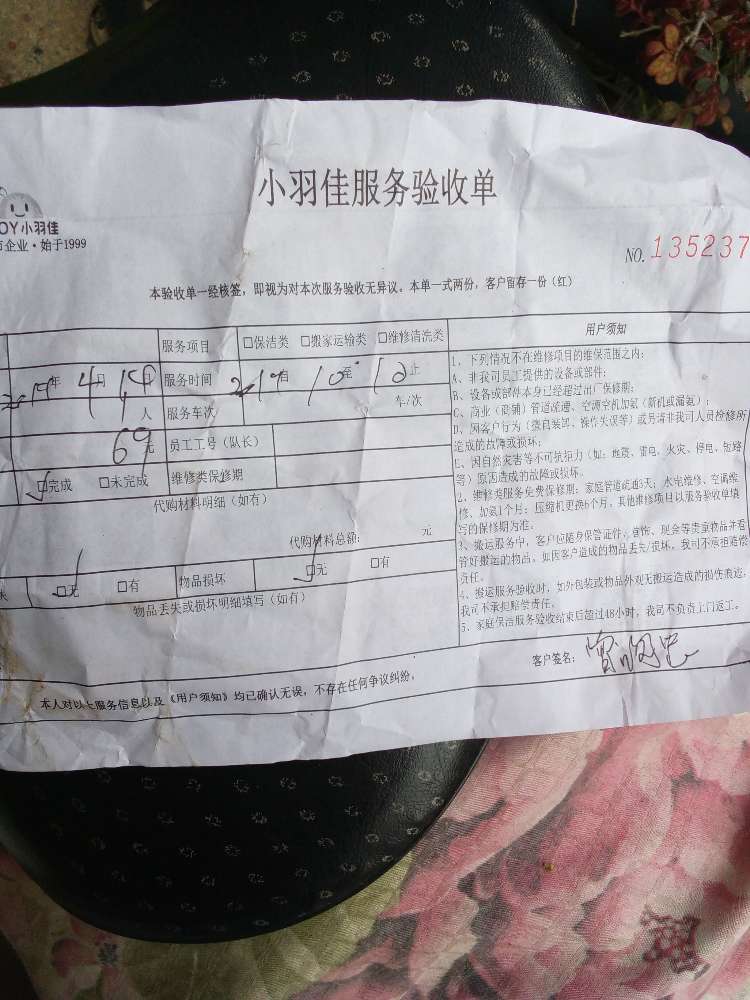 小羽佳服务验收单
OY小羽佳
企业·始于1999
NO. 135237
本验收单一经核签，即视为对本次服务验收无异议。本单一式两份，客户留存一份（红）
服务项目 □保洁类 □搬家运输类 □维修清洗类
年 4月 服务时间 自 10 至 止
人 服务车次 车/次
69元 员工工号（队长）
☑完成 □未完成 维修类保修期
代购材料明细（如有）
代购材料总额： 元
失 ☑无 □有 物品损坏 ☑无 □有
物品丢失或损坏明细填写（如有）
用户须知
1、下列情况不在维修项目的维保范围之内：
A、非我司员工提供的设备或部件；
B、设备或部件本身已经超过出厂保修期；
C、商业（店铺）管道疏通、空调空机加氟（新机或漏氟）；
D、因客户行为（擅自装卸、操作失误等）或另请非我司人员检修所
造成的故障或损坏；
E、因自然灾害等不可抗拒力（如：地震、雷电、火灾、停电、短路
等）原因造成的故障或损坏。
2、维修类服务免费保修期：家庭管道疏通3天；水电维修、空调维
修、加氟1个月；压缩机更换6个月，其他维修项目以服务验收单填
写的保修期为准。
3、搬运服务中，客户应随身保管证件、首饰、现金等贵重物品并看
管好搬运的物品。如因客户造成的物品丢失/损坏，我司不承担赔偿
责任。
4、搬运服务验收时，如外包装或物品外观无搬运造成的损伤痕迹，
我司不承担赔偿责任。
5、家庭保洁服务验收结束后超过48小时，我司不负责上门返工。
客户签名：
本人对以上服务信息以及《用户须知》均已确认无误，不存在任何争议纠纷。